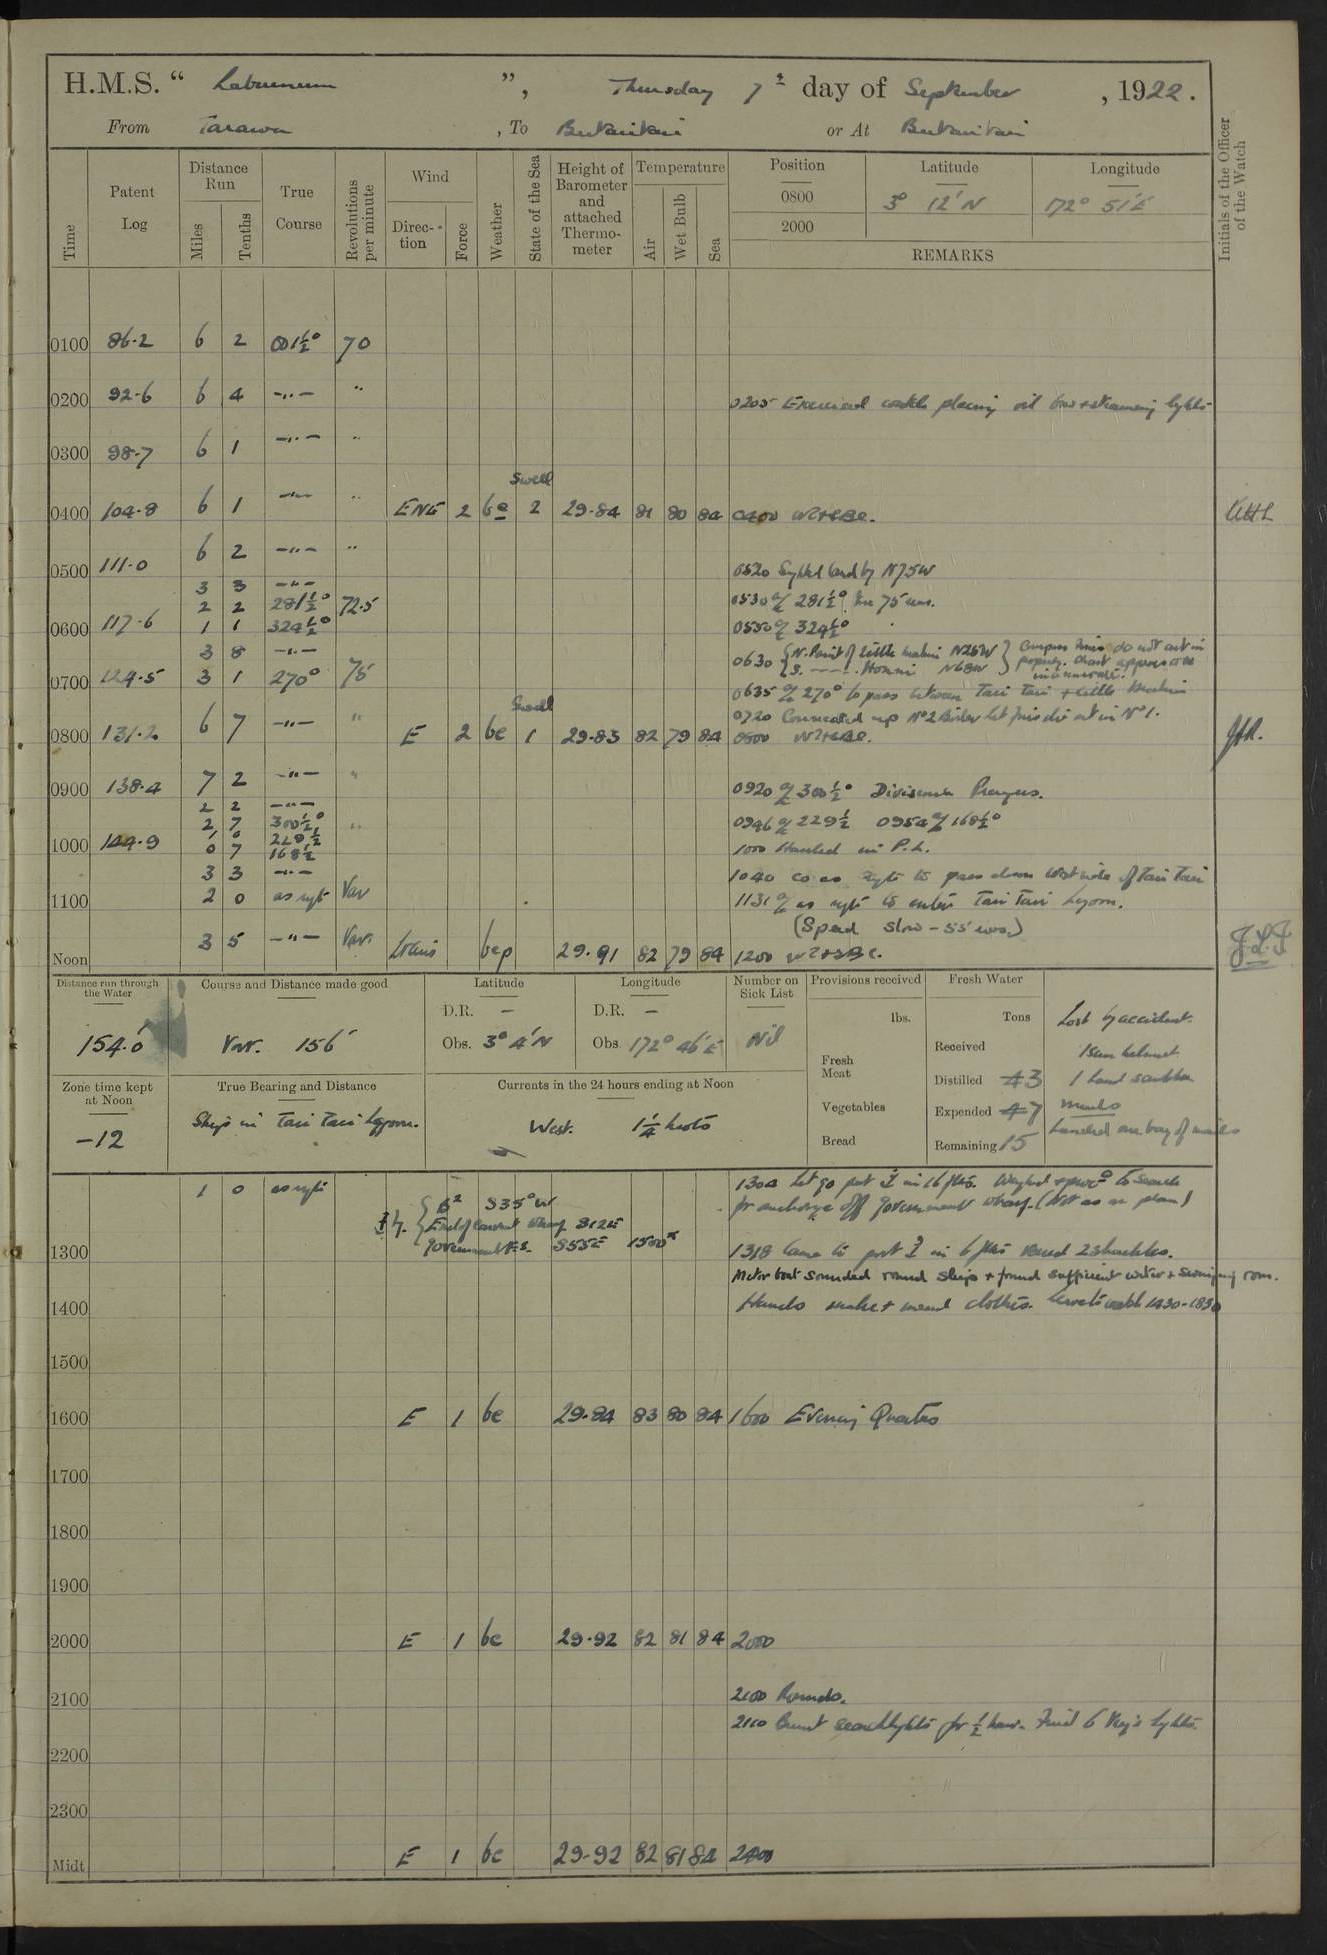 H.M.S. “ Laburnum ”, Thursday 7th day of September, 1922.
From Tarawa, To Butaritari or At Butaritari
Time
Patent Log
Distance Run
Miles
Tenths
True Course
Revolutions per minute
Wind
Direction
Force
Weather
State of the Sea
Height of Barometer and attached Thermometer
Temperature
Air
Wet Bulb
Sea
Position Latitude Longitude
0800 3° 12' N 172° 51' E
2000
REMARKS
Initials of the Officer of the Watch
0100 86.2 6 2 001½° 70
0200 92.6 6 4 —"— "
0205 Exercised placing oil bow & steaming lights
0300 98.7 6 1 —"— "
Swell
0400 104.8 6 1 —"— " ENE 2 bc 2 29.84 81 80 84 0400
0500 111.0 6 2 —"— "
0520 Sighted land by N75W
3 3 —"—
2 2 281½° 72.5
0530 a/c 281½°. 75 revs.
0600 117.6 1 1 324½°
0550 a/c 324½°
3 8 —"—
0630 N. Point of Little Makin N26W
S. —"— N68W
Compass do not cut in properly. Chart appears to be inaccurate.
0700 124.5 3 1 270° 75
0635 a/c 270° to pass between Tari Tari & Little Makin
Swell
0720 Connected up No 2 Boiler let fires die out in No 1.
0800 131.2 6 7 —"— " E 2 bc 1 29.83 82 79 84 0800
0900 138.4 7 2 —"— "
0920 a/c 300½° Divisions Prayers.
2 2 —"—
2 7 300½° "
1 0 229½
0946 a/c 229½ 0954 a/c 168½°
1000 144.9 0 7 168½
1000 Hauled in P.L.
3 3 —"—
1040 Co as reqte to pass down West side of Tari Tari
1100 2 0 as reqte Var
1131 a/c as reqte to enter Tari Tari Lagoon.
(Speed slow - 55 revs.)
Noon 3 5 —"— Var. bcp 29.91 82 79 84 1200
Distance run through the Water
154.0
Course and Distance made good
Var. 156
Latitude
D.R. —
Obs. 3° 4' N
Longitude
D.R. —
Obs. 172° 46' E
Number on Sick List
Nil
Provisions received
lbs.
Fresh Meat
Vegetables
Bread
Fresh Water
Tons
Received
Distilled 43
Expended 47
Remaining 15
Lost by accident.
1 Sun helmet
1 hand scrubber
Landed one bag of mails
Zone time kept at Noon
-12
True Bearing and Distance
Ship in Tari Tari Lagoon.
Currents in the 24 hours ending at Noon
West. 1¼ knots
1 0 as reqte
1304 Let go port ⚓ in 16 fms. Weighed & procd to search
for anchorage off Government wharf. (Not as on plan)
S35°W
End of wharf S12E
Government F.S. S55E
1300
1318 Came to port ⚓ in 6 fms veered 2 shackles.
Motor boat sounded round ship & found sufficient water & swinging room.
1400
Hands make & mend clothes. 1430-1830
1500
1600 E 1 bc 29.84 83 80 84 1600 Evening Quarters
1700
1800
1900
2000 E 1 bc 29.92 82 81 84 2000
2100
2100 Rounds.
2110 Burnt searchlights for ½ hour. Fired 6 Very's lights.
2200
2300
Midt E 1 bc 29.92 82 81 84 2400